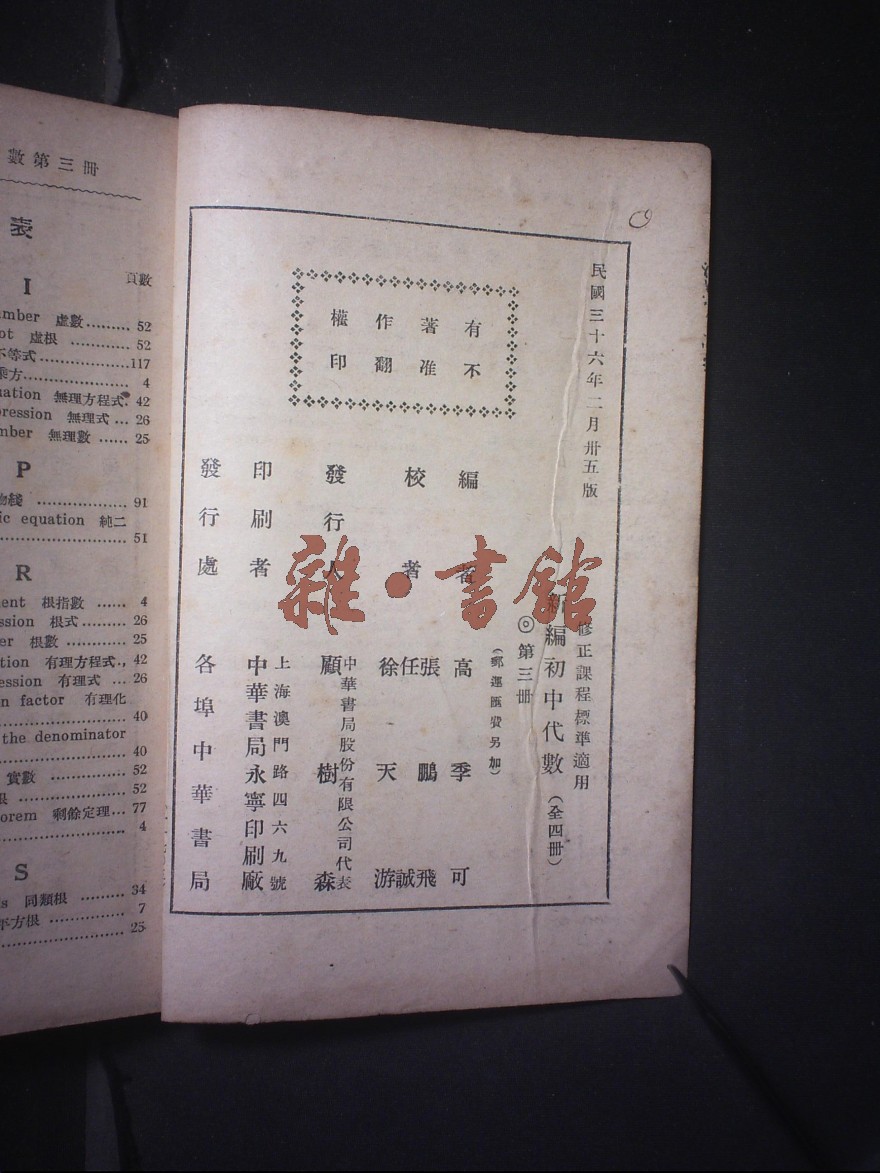 民國三十六年二月卅五版
修正課程標準適用
新編初中代數（全四冊）
◎第三冊
（郵運匯費另加）
有著作權
不准翻印
編者 高季可
校者 張鵬飛
任誠
徐天游
發行人 中華書局股份有限公司代表
顧樹森
印刷者 上海澳門路四六九號
中華書局永寧印刷廠
發行處 各埠中華書局
雜·書館
數第三冊
表
頁數
I
虛數……… 52
虛根……… 52
不等式………117
乘方……… 4
無理方程式. 42
pression 無理式 … 26
無理數 …… 25
P
……… 91
ic equation 純二
……… 51
R
根指數 …… 4
根式……… 26
根數……… 25
有理方程式., 42
有理式 … 26
factor 有理化
……… 40
the denominator
……… 40
實數……… 52
……… 52
剩餘定理… 77
……… 4
S
同類根……… 34
平方根……… 7
……… 25